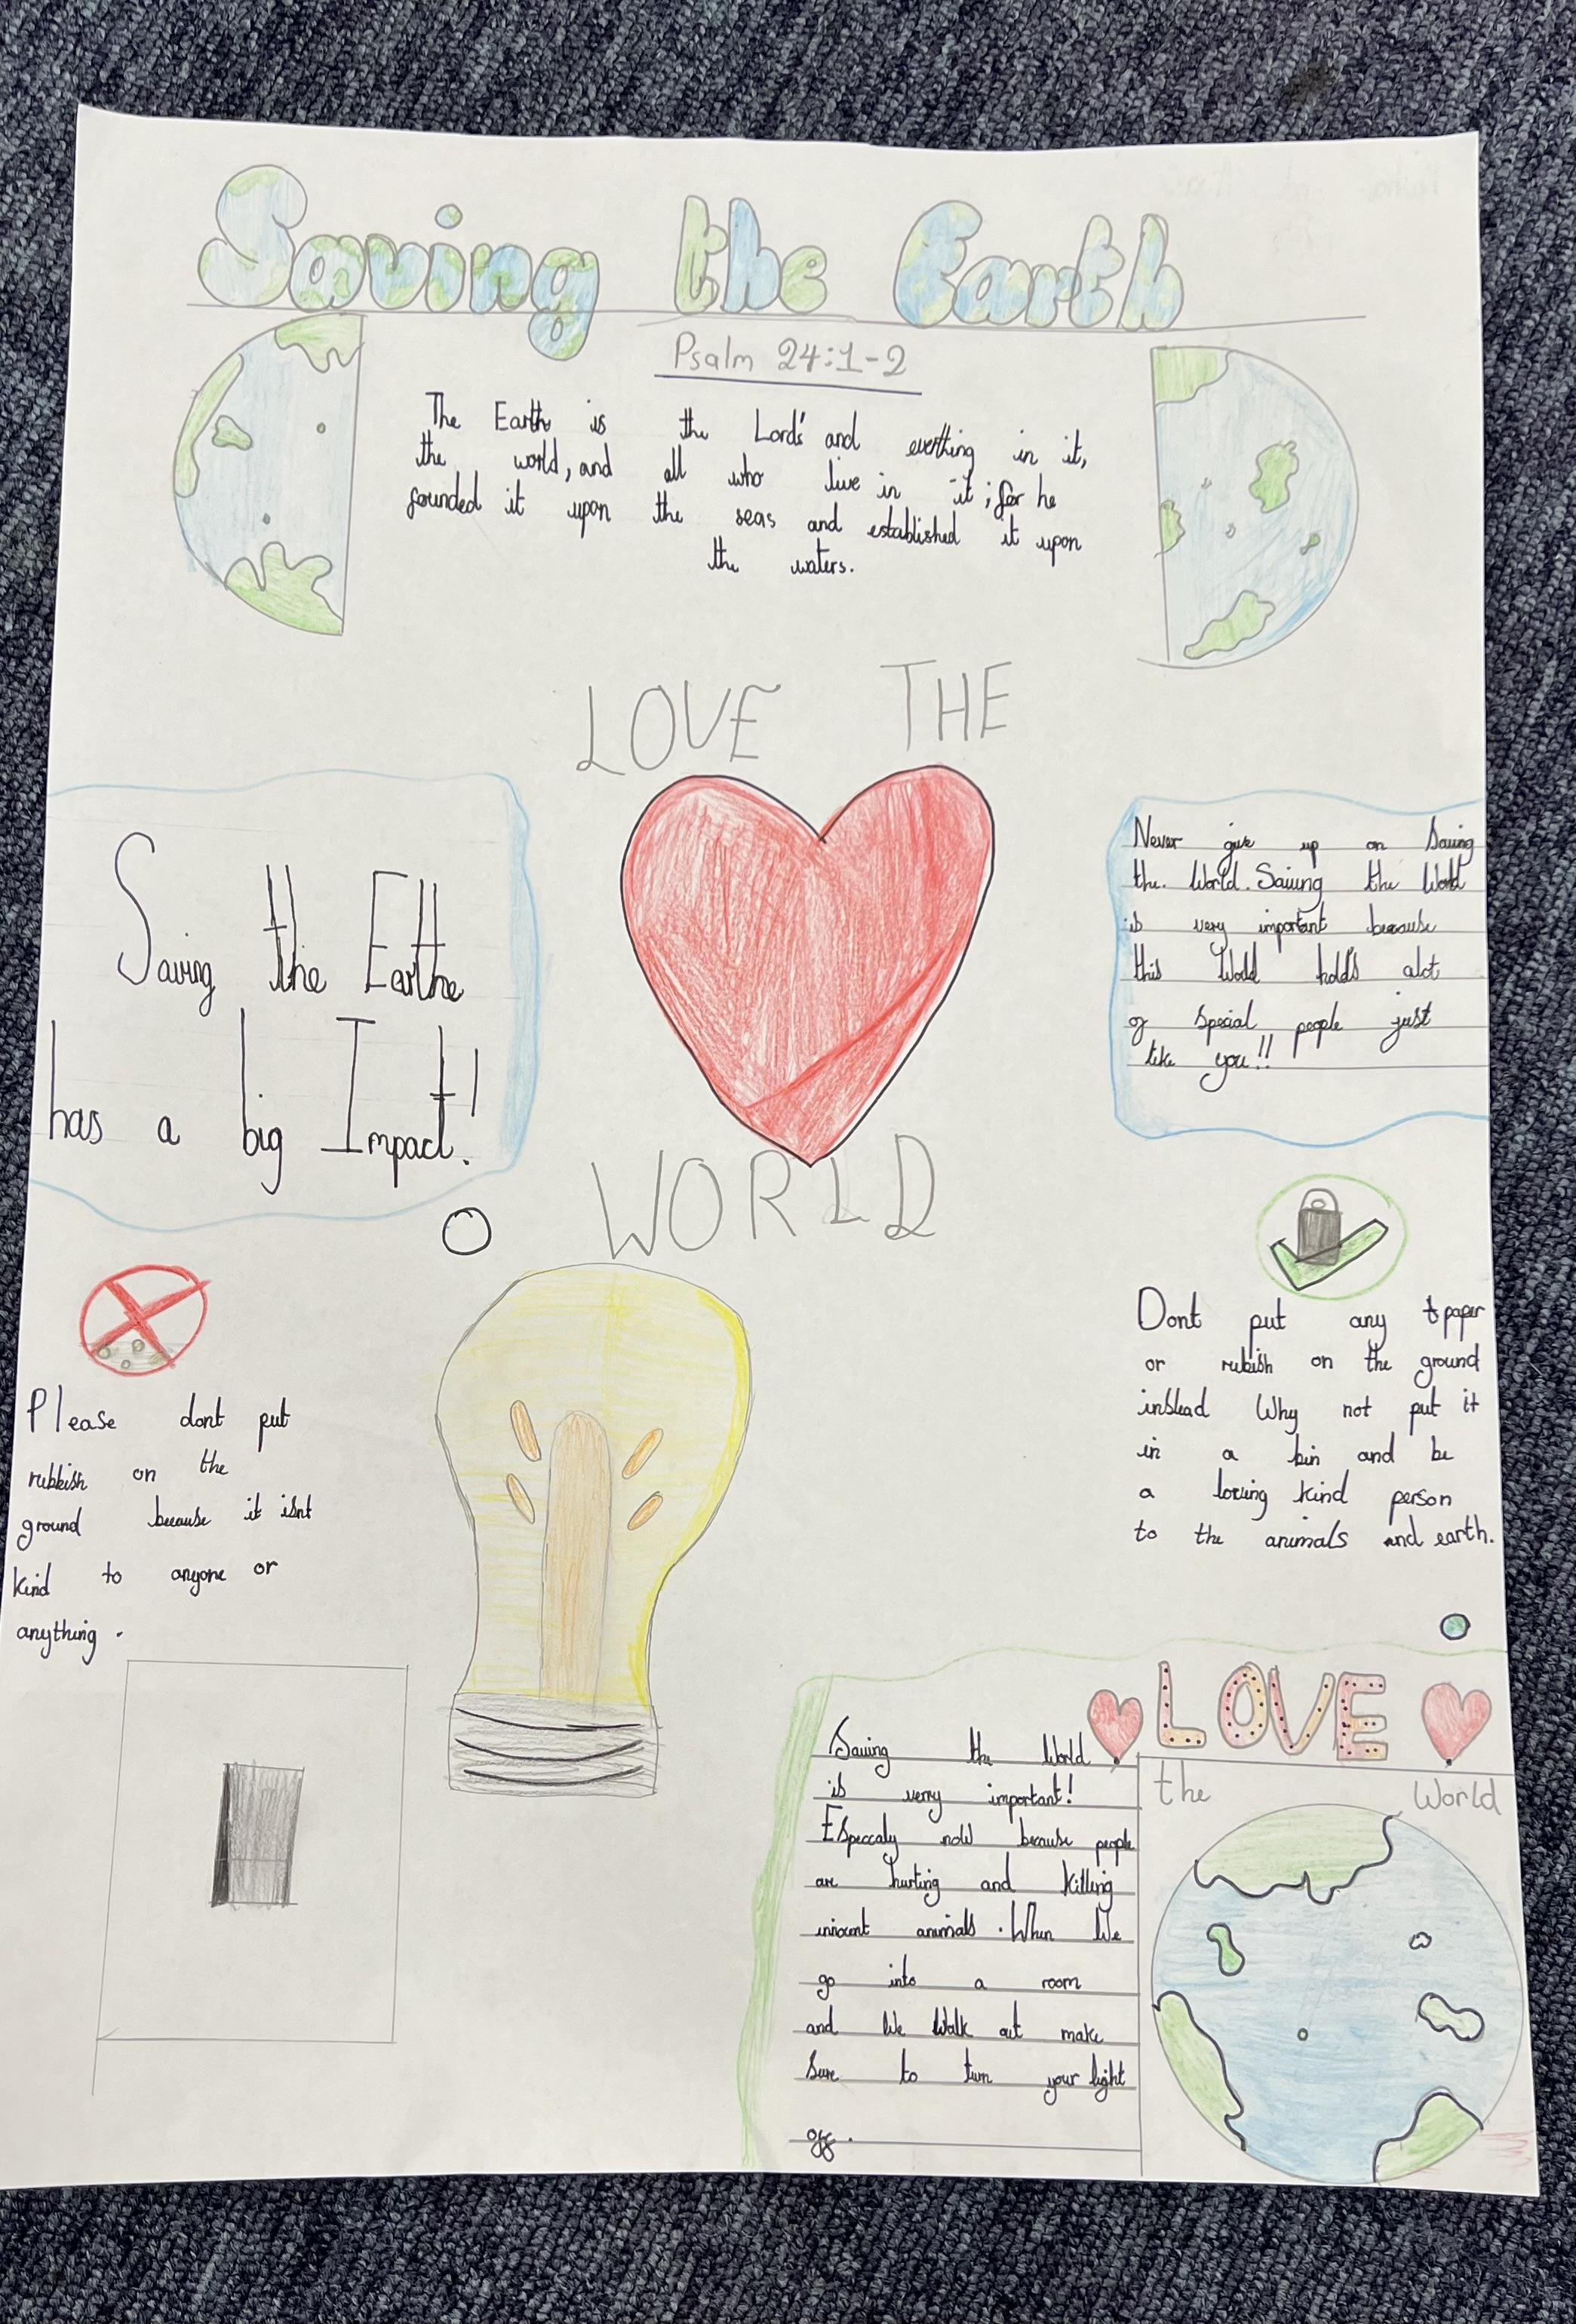 Saving the Earth
Psalm 24:1-2
The Earth is the Lord's and everthing in it,
the world, and all who live in it; for he
founded it upon the seas and established it upon
the waters.
LOVE THE
WORLD
Saving the Earthe
has a big Impact!
Never give up on Saving
the. World. Saving the World
is very important because
this World hold's alot
of special people just
like you!!
Please dont put
rubbish on the
ground because it isnt
kind to anyone or
anything.
Dont put any paper
or rubish on the ground
instead Why not put it
in a bin and be
a loving kind person
to the animals and earth.
Saving the World
is verry important!
Especcaly now because people
are hurting and killing
innocent animals. When We
go into a room
and We Walk out make
Sure to turn your light
off.
LOVE
the World